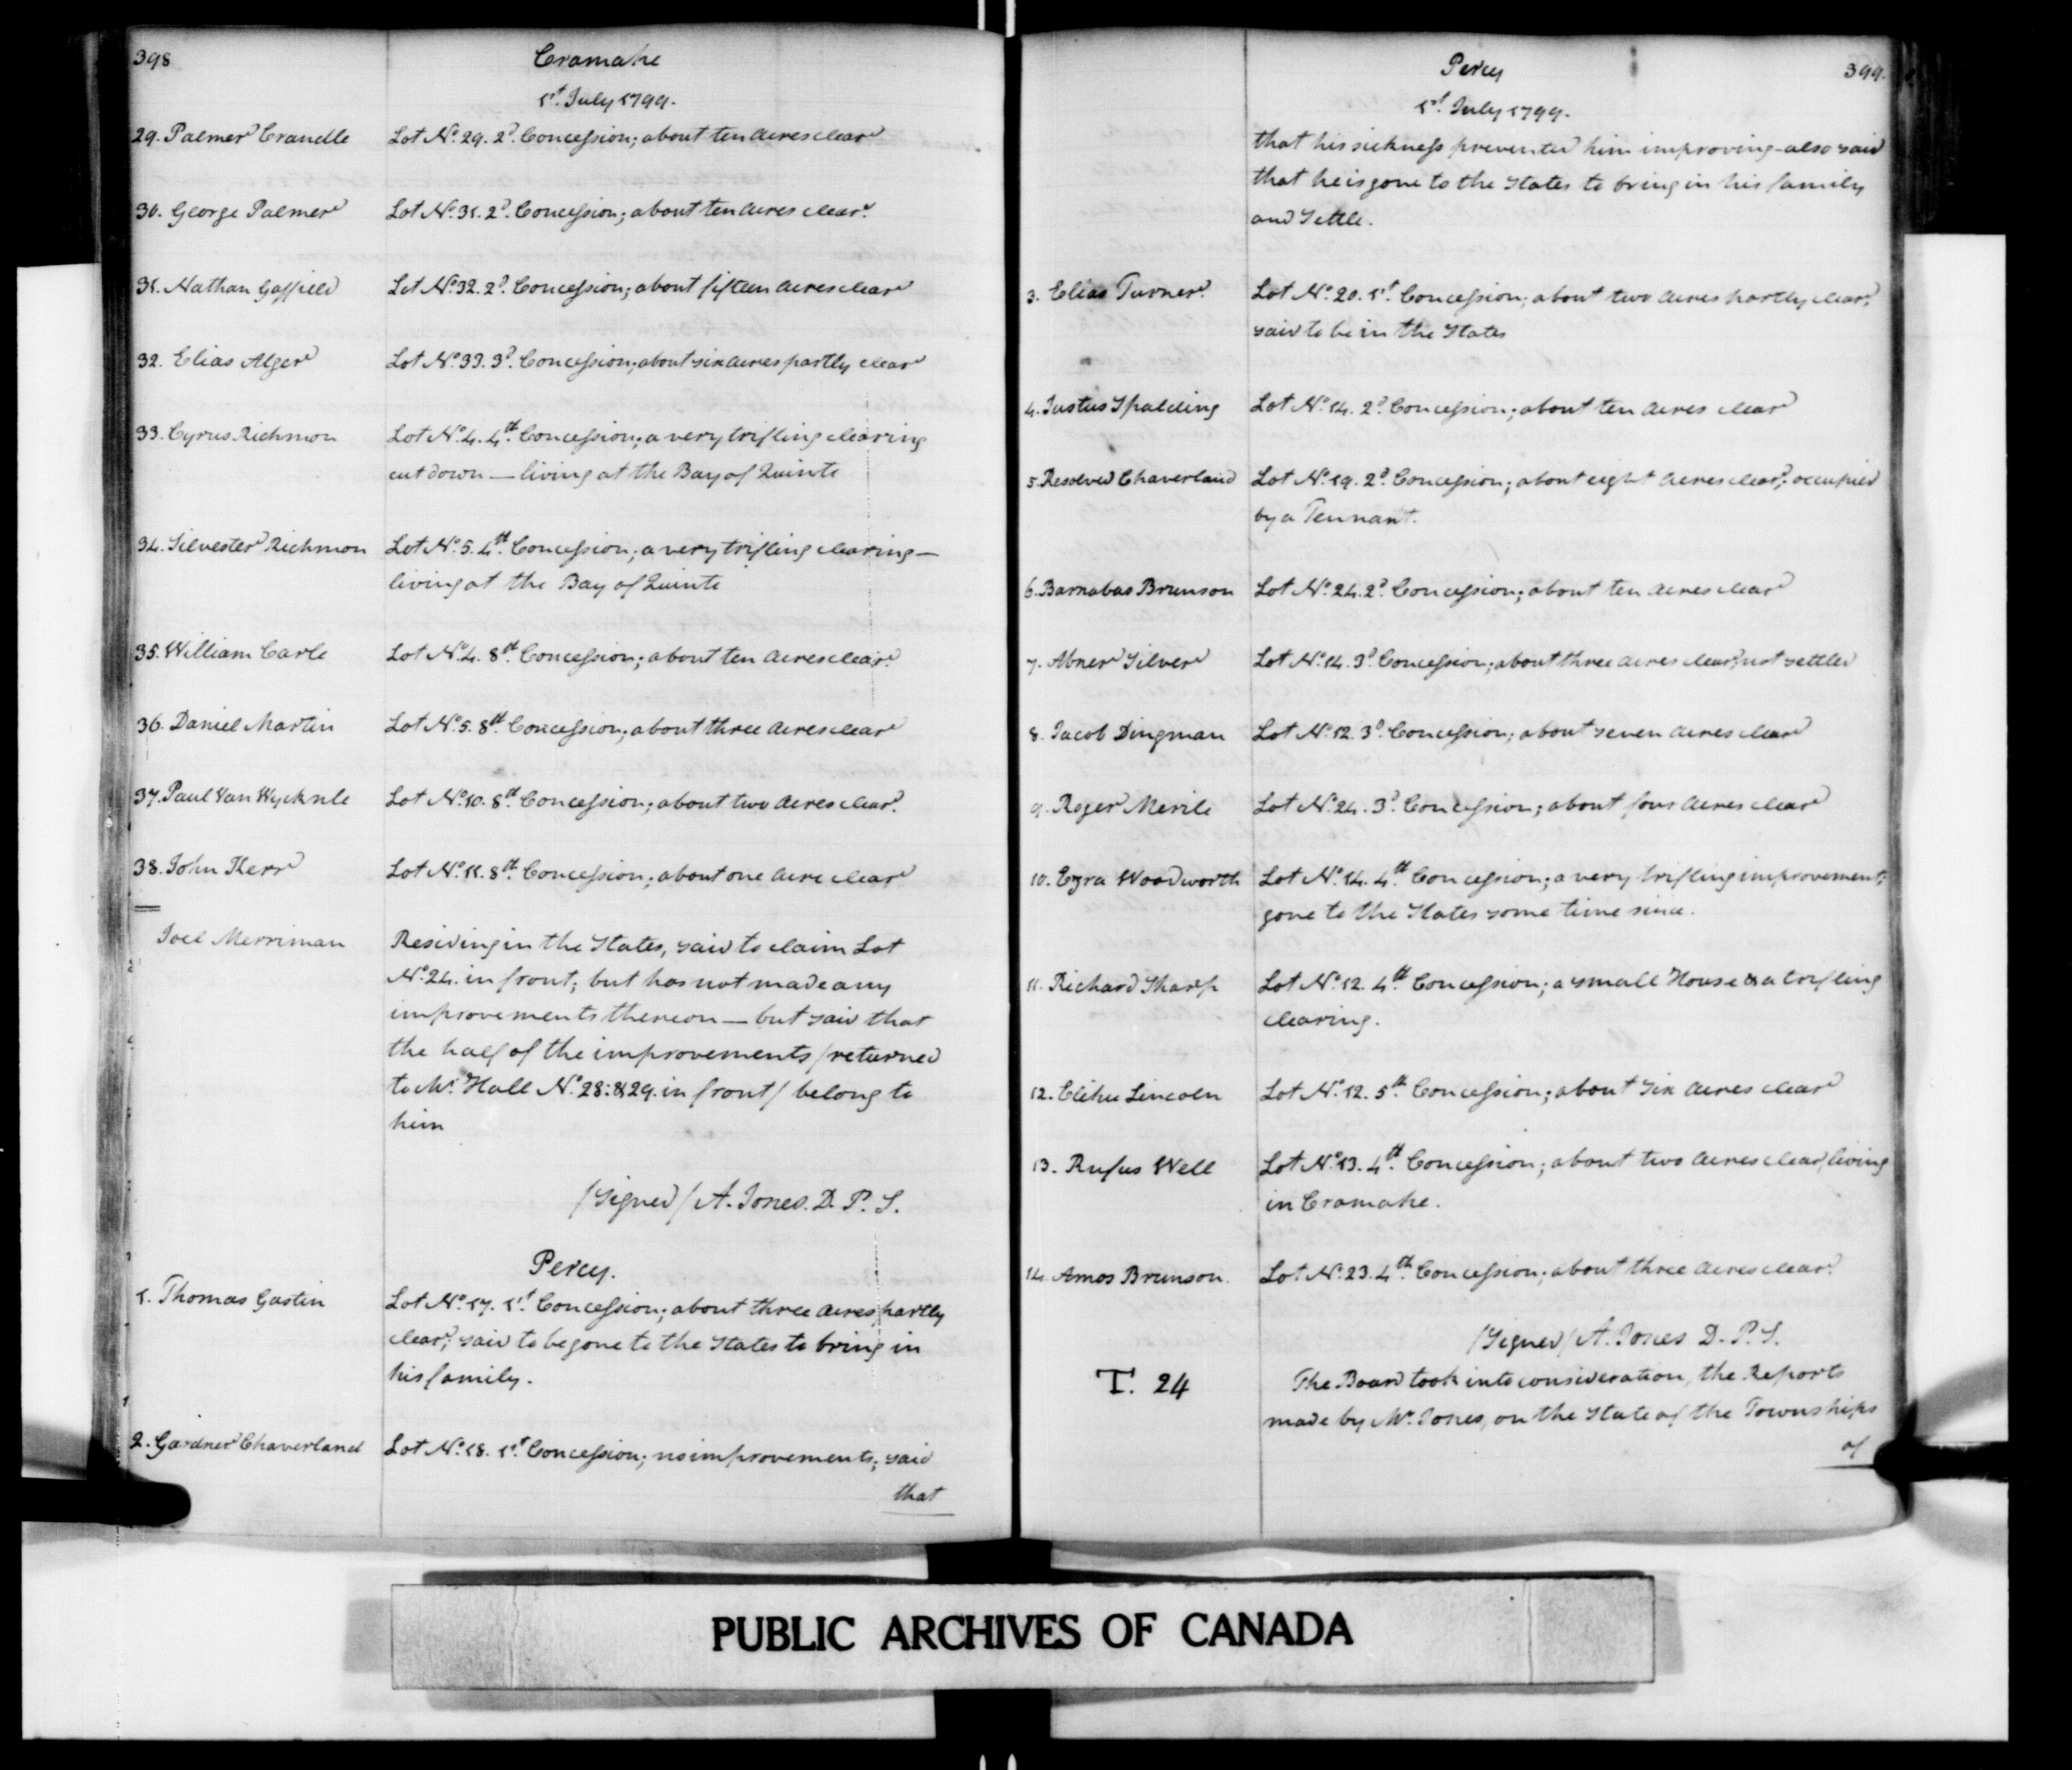 398
Cramahe
1st. July 1799.
29. Palmer Crandle Lot No. 29. 2d. Concession; about ten acres clear
30. George Palmer Lot No. 31. 2d. Concession; about ten acres clear.
31. Nathan Gaffield Lot No. 32. 2d. Concession; about fifteen acres clear
32. Elias Alger Lot No. 33. 3d. Concession; about six acres partly clear
33. Cyrus Richmon Lot No. 4. 4th. Concession; a very trifling clearing
cut down — living at the Bay of Quinte
34. Silvester Richmon Lot No. 5. 4th. Concession; a very trifling clearing —
living at the Bay of Quinte
35. William Carle Lot No. 4. 8th. Concession; about ten acres clear.
36. Daniel Martin Lot No. 5. 8th. Concession; about three acres clear
37. Paul Van Wycknle Lot No. 10. 8th. Concession; about two acres clear.
38. John Kerr Lot No. 11. 8th. Concession; about one acre clear
Joel Merriman Residing in the States, said to claim Lot
No. 24. in front; but has not made any
improvements thereon — but said that
the half of the improvements /returned
to Mr. Hall No. 28: & 29. in front/ belong to
him
/Signed/ A. Jones. D. P. S.
Percy.
1. Thomas Gastin Lot No. 17. 1st Concession; about three acres partly
clear; said to be gone to the States to bring in
his family.
2. Gardner Chaverland Lot No. 18. 1st. Concession; no improvements; said
that
Percy 399.
1st. July 1799.
that his sickness prevented him improving - also said
that he is gone to the States to bring in his family
and Settle.
3. Elias Turner. Lot No. 20. 1st. Concession; about two acres partly clear;
said to be in the States
4. Justus Spalding Lot No. 14. 2d. Concession; about ten acres clear
5. Resolved Chaverland Lot No. 19. 2d. Concession; about eight acres clear; occupied
by a Tennant.
6. Barnabas Brunson Lot No. 24. 2d. Concession; about ten acres clear
7. Abner Silver Lot No. 14. 3d. Concession; about three acres clear; not settled
8. Jacob Dingman Lot No. 12. 3d. Concession; about seven acres clear
9. Roger Merile Lot No. 24. 3d. Concession; about four acres clear
10. Ezra Woodworth Lot No. 14. 4th. Concession; a very trifling improvement;
gone to the States some time since.
11. Richard Sharp Lot No. 12. 4th. Concession; a small House & a trifling
clearing.
12. Elihu Lincoln Lot No. 12. 5th. Concession; about six acres clear
13. Rufus Well Lot No. 13. 4th. Concession; about two acres clear, living
in Cramahe.
14. Amos Brunson. Lot No. 23. 4th. Concession; about three acres clear.
/Signed/ A. Jones D. P. S.
T. 24 The Board took into consideration, the Reports
made by Mr. Jones, on the State of the Townships
of
PUBLIC ARCHIVES OF CANADA